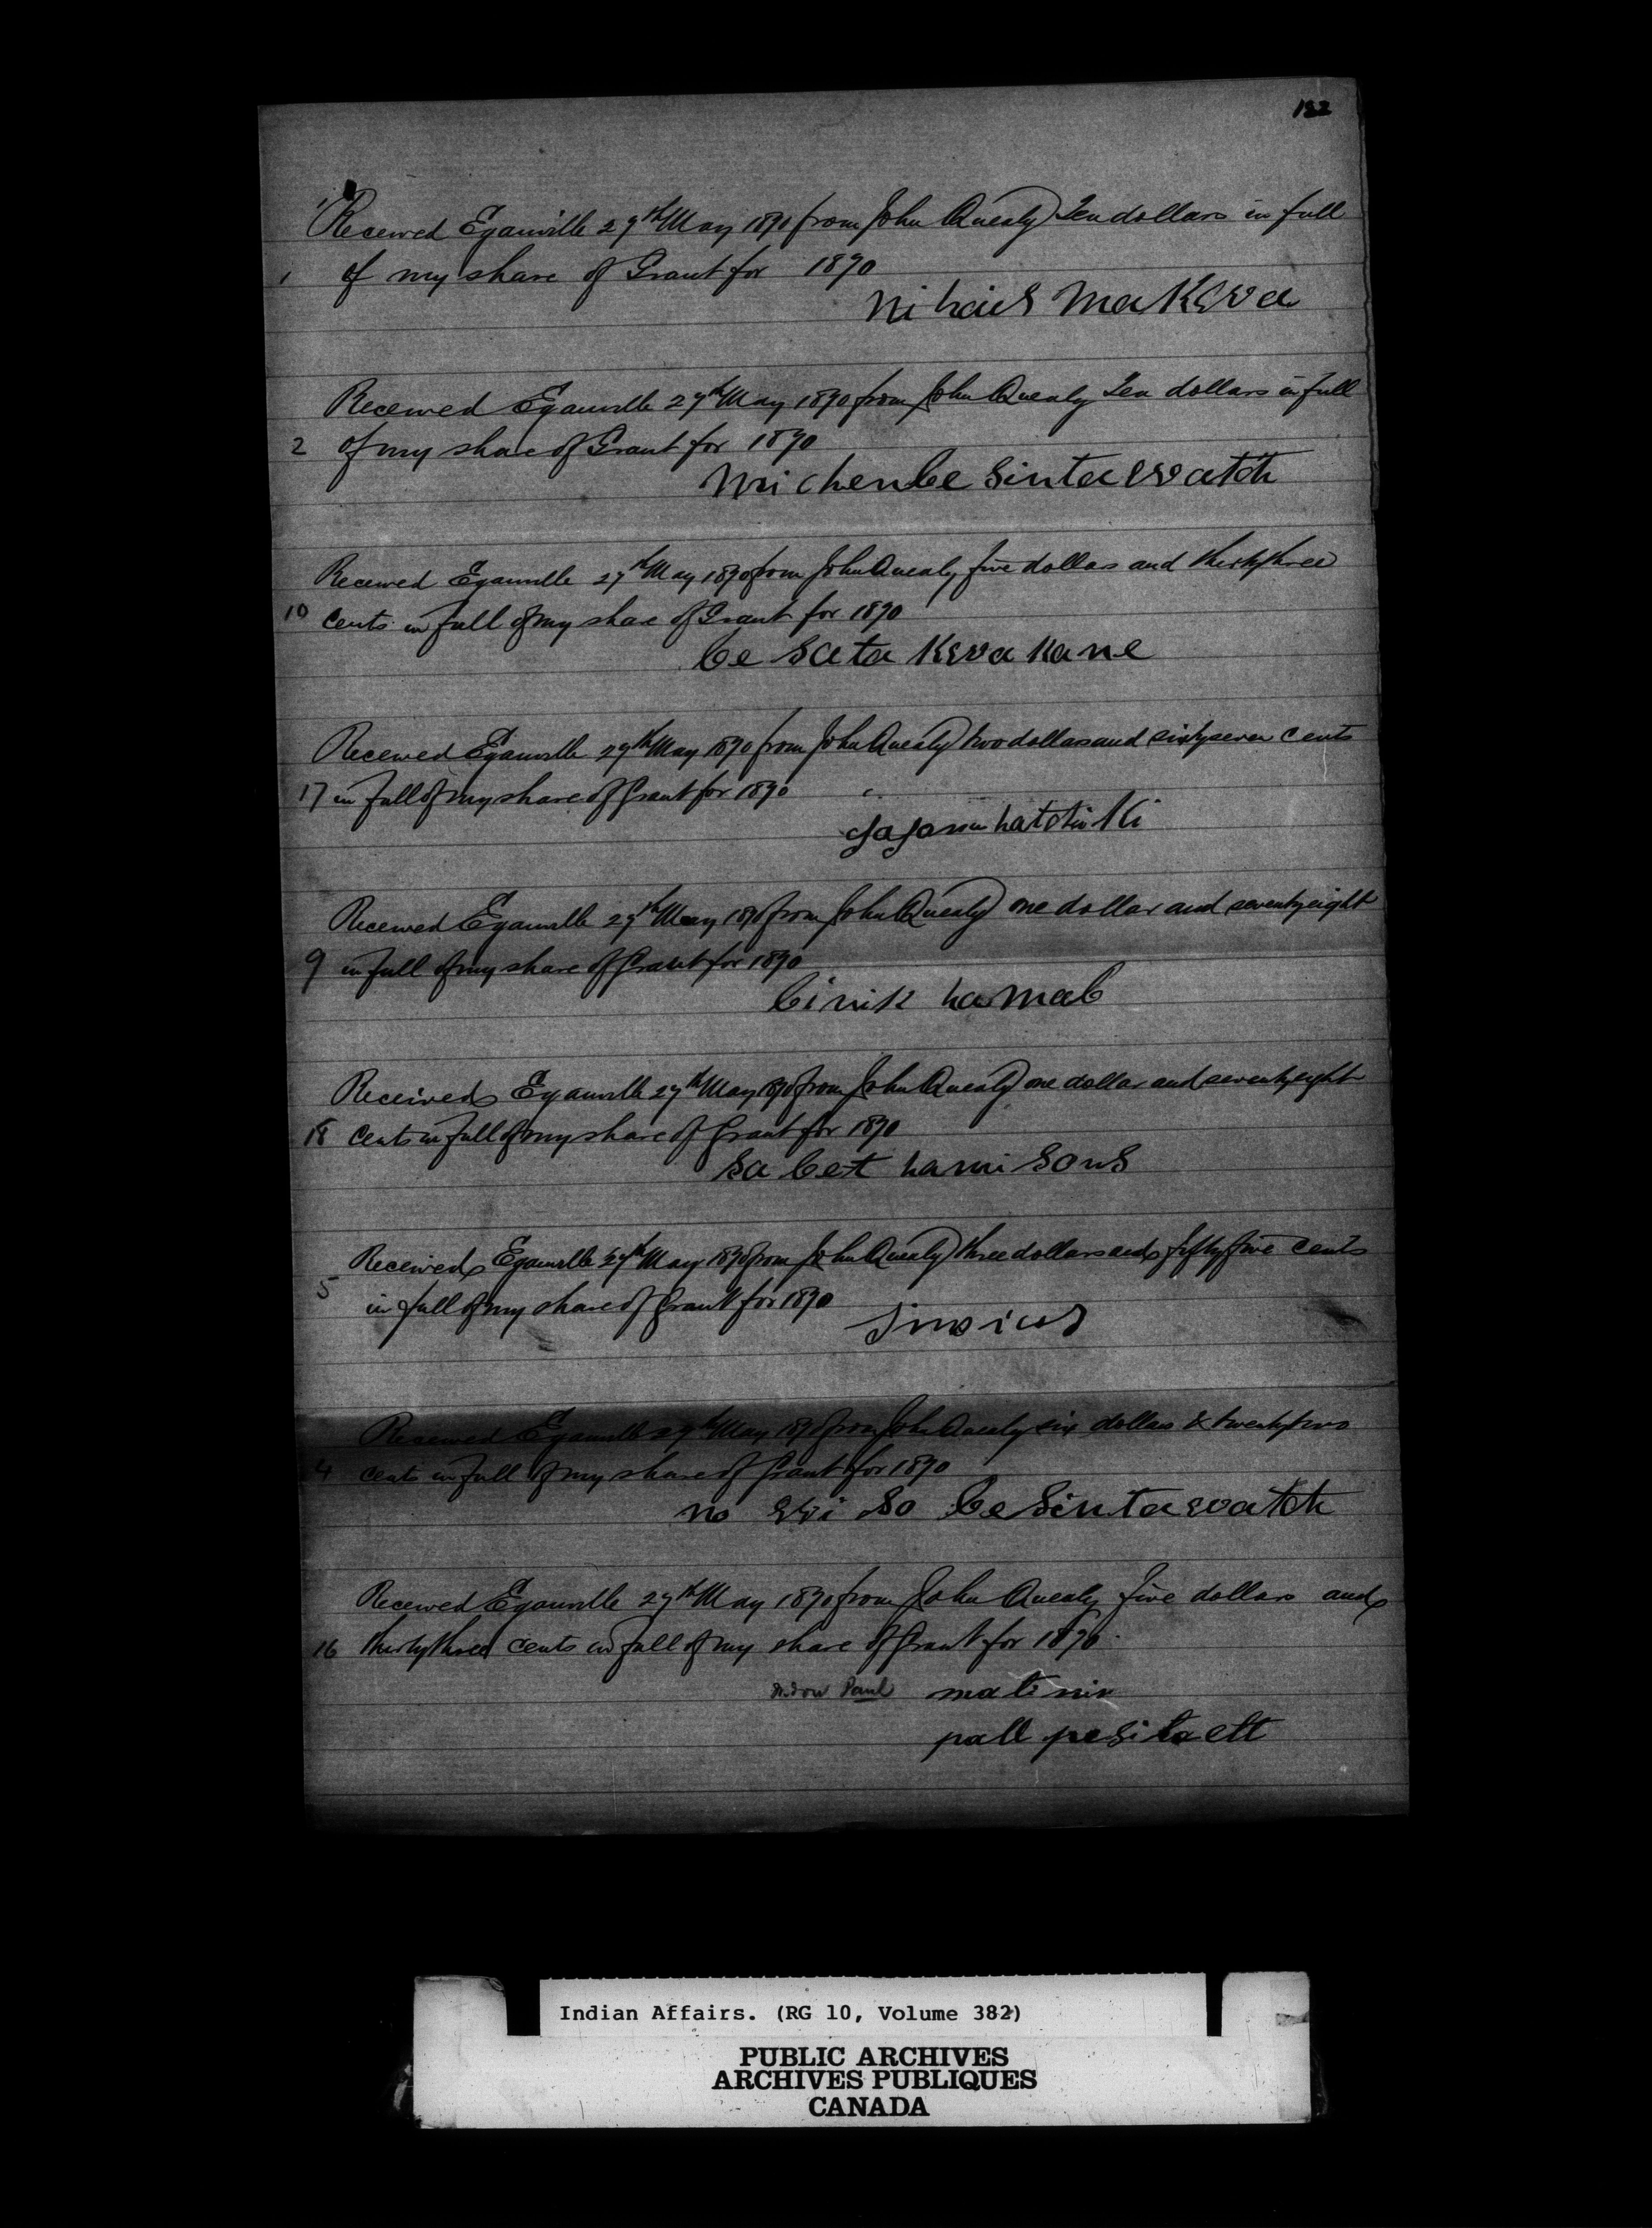 182
Received Eganville 27th May 1890 from John Quealy Ten dollars in full
1 of my share of Grant for 1890
Makwa
Received Eganville 27th May 1890 from John Quealy Ten dollars in full
2 of my share of Grant for 1890
Michen besintawatch
Received Eganville 27th May 1890 from John Quealy five dollars and thirtythree
10 cents in full of my share of Grant for 1890
be sata Kwa Kane
Received Eganville 27th May 1890 from John Quealy two dollars and sixtyseven cents
17 in full of my share of Grant for 1890
Received Eganville 27th May 1890 from John Quealy one dollar and seventyeight
9 in full of my share of Grant for 1890
binik hamab
Received Eganville 27th May 1890 from John Quealy one dollar and seventyeight
18 cents in full of my share of Grant for 1890
sa bet hami sons
Received Eganville 27th May 1890 from John Quealy three dollars and fiftyfive cents
5 in full of my share of Grant for 1890
Received Eganville 27th May 1890 from John Quealy six dollars & twentytwo
4 cents in full of my share of Grant for 1890
no wi so besintawatch
Received Eganville 27th May 1890 from John Quealy five dollars and
16 thirtythree cents in full of my share of Grant for 1890.
Widow Paul
pall
Indian Affairs. (RG 10, Volume 382)
PUBLIC ARCHIVES
ARCHIVES PUBLIQUES
CANADA